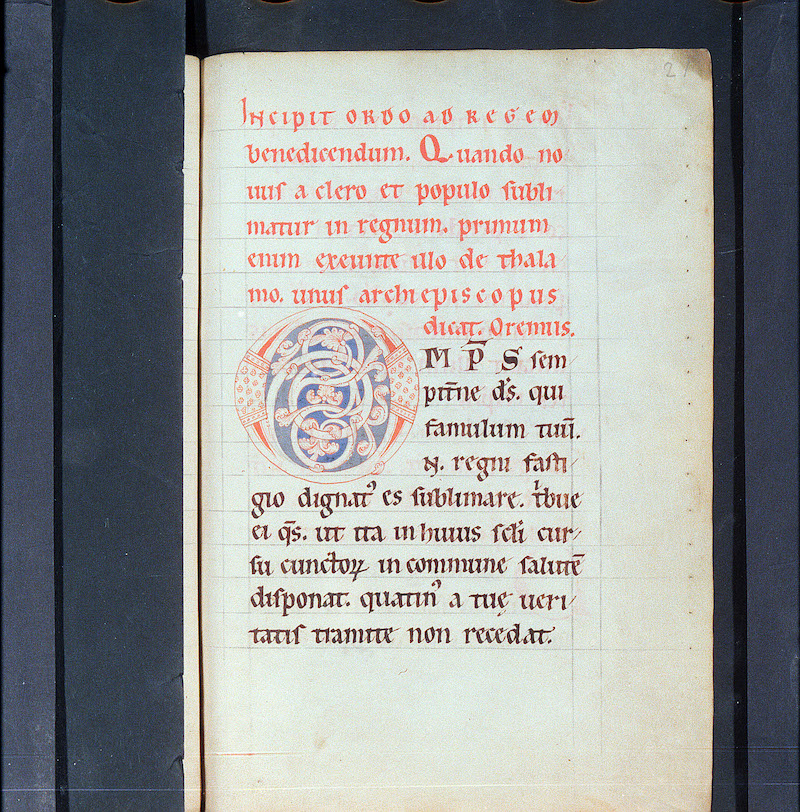 2
Incipit ordo ad regem
benedicendum. Quando no
uus a clero et populo subli
matur in regnum. primum
enim exeunte illo de thala
mo. unus archiepiscopus
dicat. Oremus.
OMP̄S sem
pit̄ne d̄s. qui
famulum tuū.
N. regni fasti
gio dignatꝰ es sublimare. t̾bue
ei q̄s. ut ita in huius scl̄i cur
su cunctoꝝ in commune salutē
disponat. quatinꝰ a tuę ueri
tatis tramite non recedat.